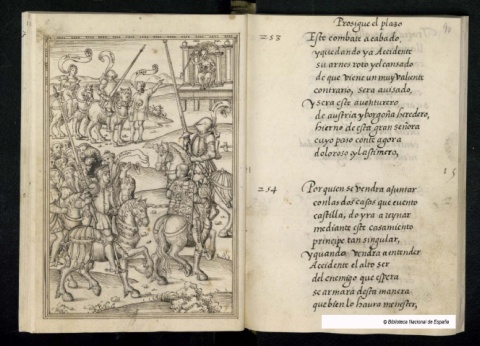 Prosigue el plazo
253 Este combate acabado,
y quedando ya Accidente
su arnes roto y el cansado
de que viene un muy valiente
contrario, sera auisado,
Y sera este auenturero
de austria y borgoña heredero,
hierno de esta gran señora
cuyo paso conte agora
doloroso y lastimero,
254 Por quien se vendra a iuntar
con las dos casas que cuento
castilla, do yra a reynar
mediante este casamiento
principe tan singular,
y quando vendra a entender
Accidente el alto ser
del enemigo que espera
se armara desta manera
que bien lo haura menester,
© Biblioteca Nacional de España